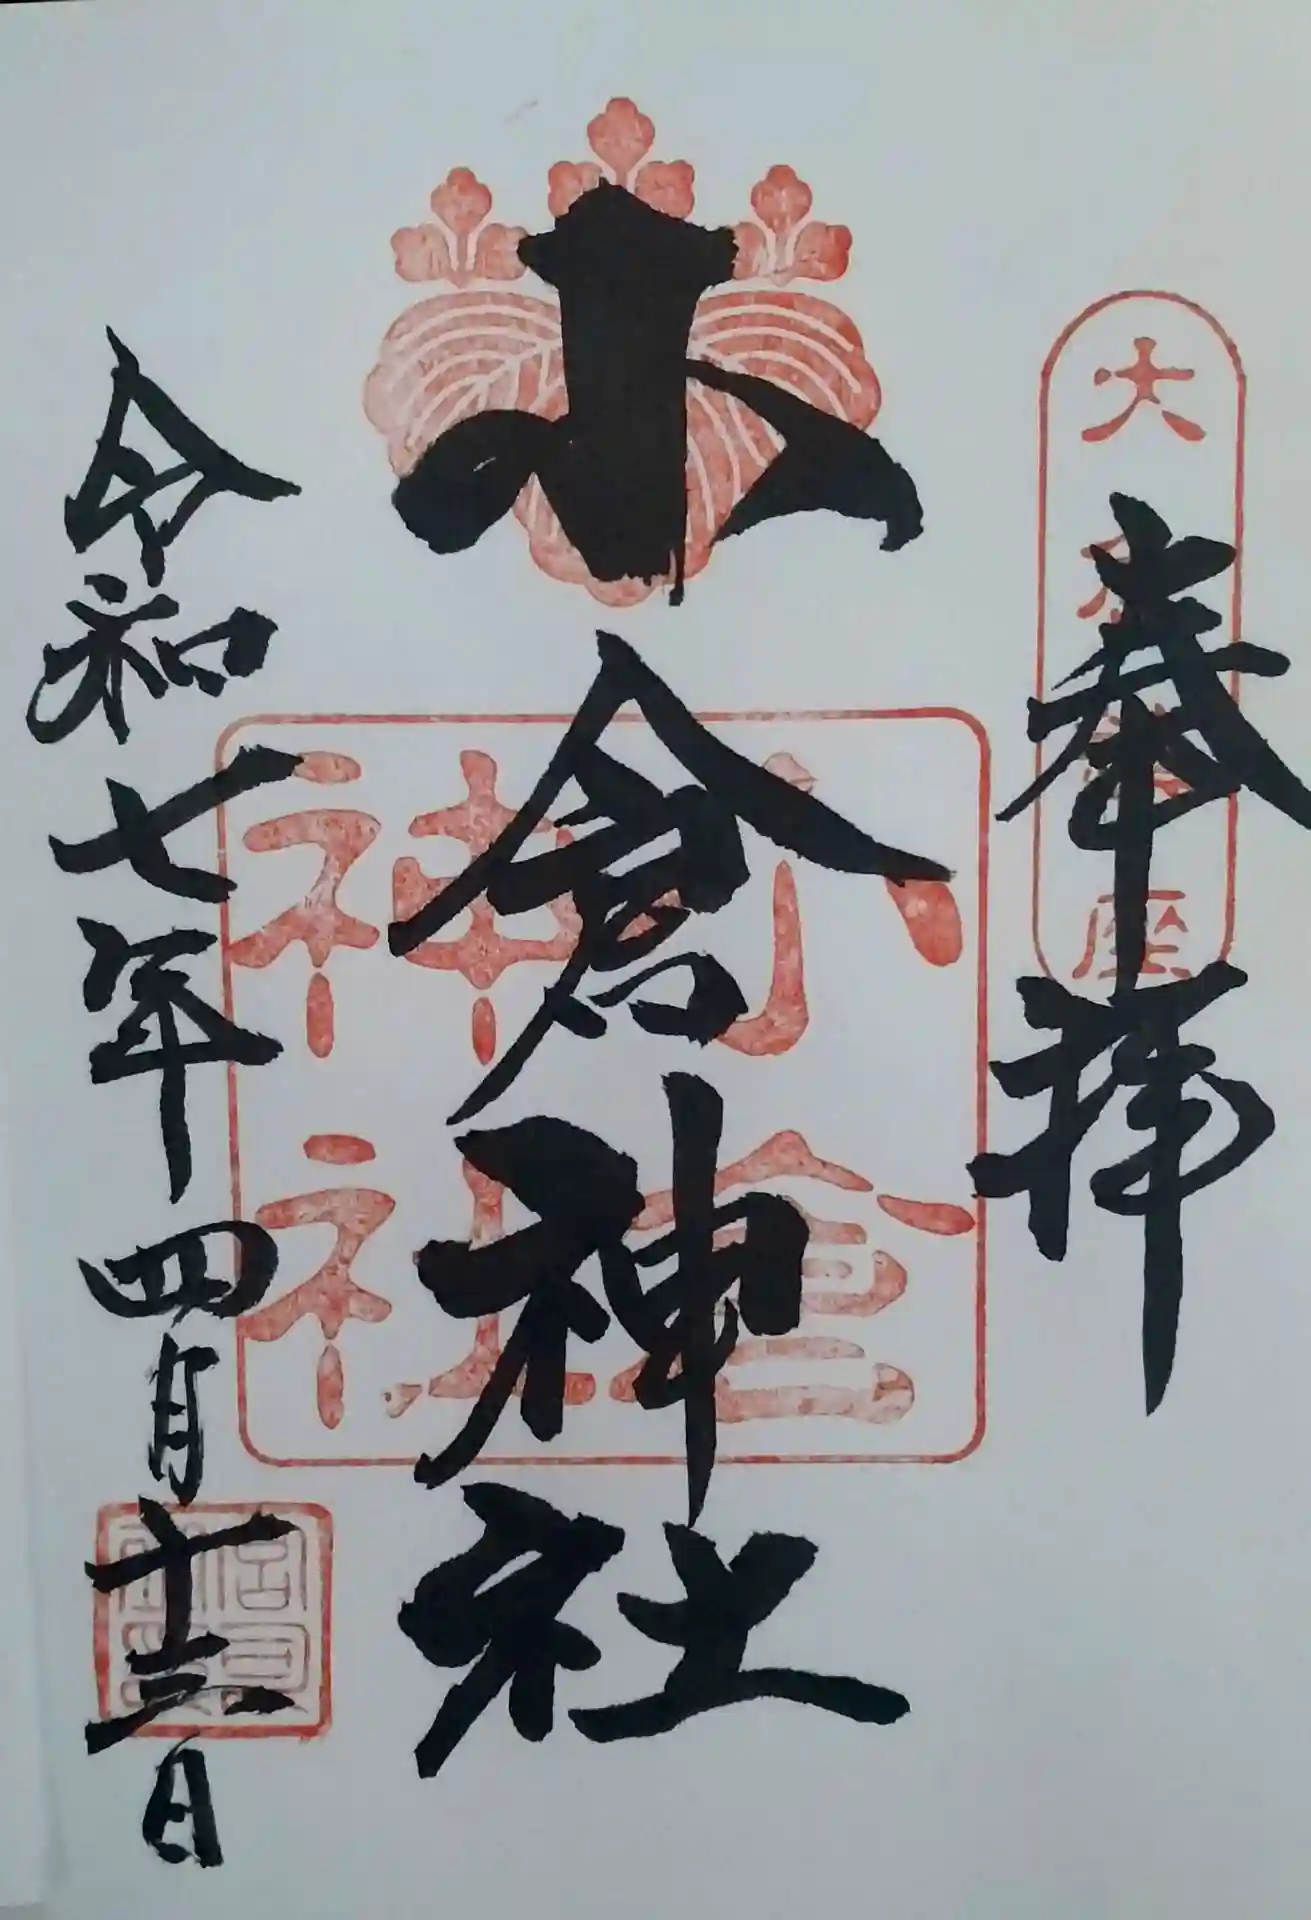 大
座
奉拝
小倉神社
小倉
神社
令和七年四月十三日